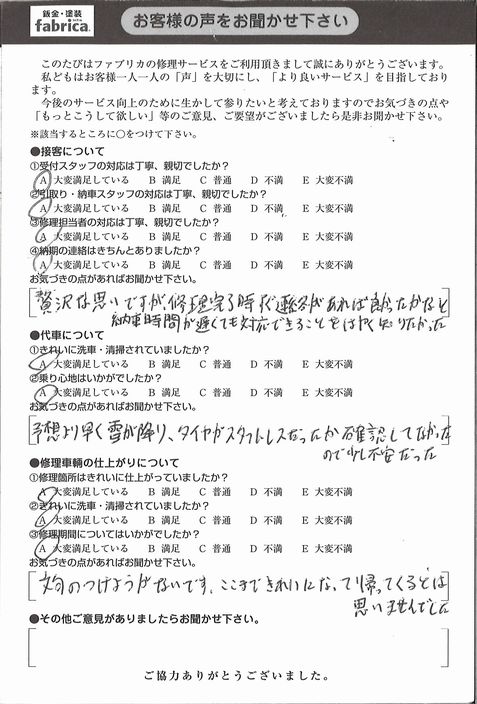 鈑金・塗装
fabrica.
お客様の声をお聞かせ下さい
このたびはファブリカの修理サービスをご利用頂きまして誠にありがとうございます。
私どもはお客様一人一人の「声」を大切にし、「より良いサービス」を目指しており
ます。
今後のサービス向上のために生かして参りたいと考えておりますのでお気づきの点や
「もっとこうして欲しい」等のご意見、ご要望がございましたら是非お聞かせ下さい。
※該当するところに○をつけて下さい。
●接客について
①受付スタッフの対応は丁寧、親切でしたか?
A 大変満足している B 満足 C 普通 D 不満 E 大変不満
②引取り・納車スタッフの対応は丁寧、親切でしたか?
A 大変満足している B 満足 C 普通 D 不満 E 大変不満
③修理担当者の対応は丁寧、親切でしたか?
A 大変満足している B 満足 C 普通 D 不満 E 大変不満
④納期の連絡はきちんとありましたか?
A 大変満足している B 満足 C 普通 D 不満 E 大変不満
お気づきの点があればお聞かせ下さい。
贅沢な思いですが、修理完了時で連絡があれば良かったかなと
納車時間が遅くても対応できることをはやく知りたかった
●代車について
①きれいに洗車・清掃されていましたか?
A 大変満足している B 満足 C 普通 D 不満 E 大変不満
②乗り心地はいかがでしたか?
A 大変満足している B 満足 C 普通 D 不満 E 大変不満
お気づきの点があればお聞かせ下さい。
予想より早く雪が降り、タイヤがスタットレスだったか確認してなかった
ので少し不安だった
●修理車輌の仕上がりについて
①修理箇所はきれいに仕上がっていましたか?
A 大変満足している B 満足 C 普通 D 不満 E 大変不満
②きれいに洗車・清掃されていましたか?
A 大変満足している B 満足 C 普通 D 不満 E 大変不満
③修理期間についてはいかがでしたか?
A 大変満足している B 満足 C 普通 D 不満 E 大変不満
お気づきの点があればお聞かせ下さい。
文句のつけようがないです。ここまできれいになって帰ってくるとは
思いませんでした
●その他ご意見がありましたらお聞かせ下さい。
ご協力ありがとうございました。